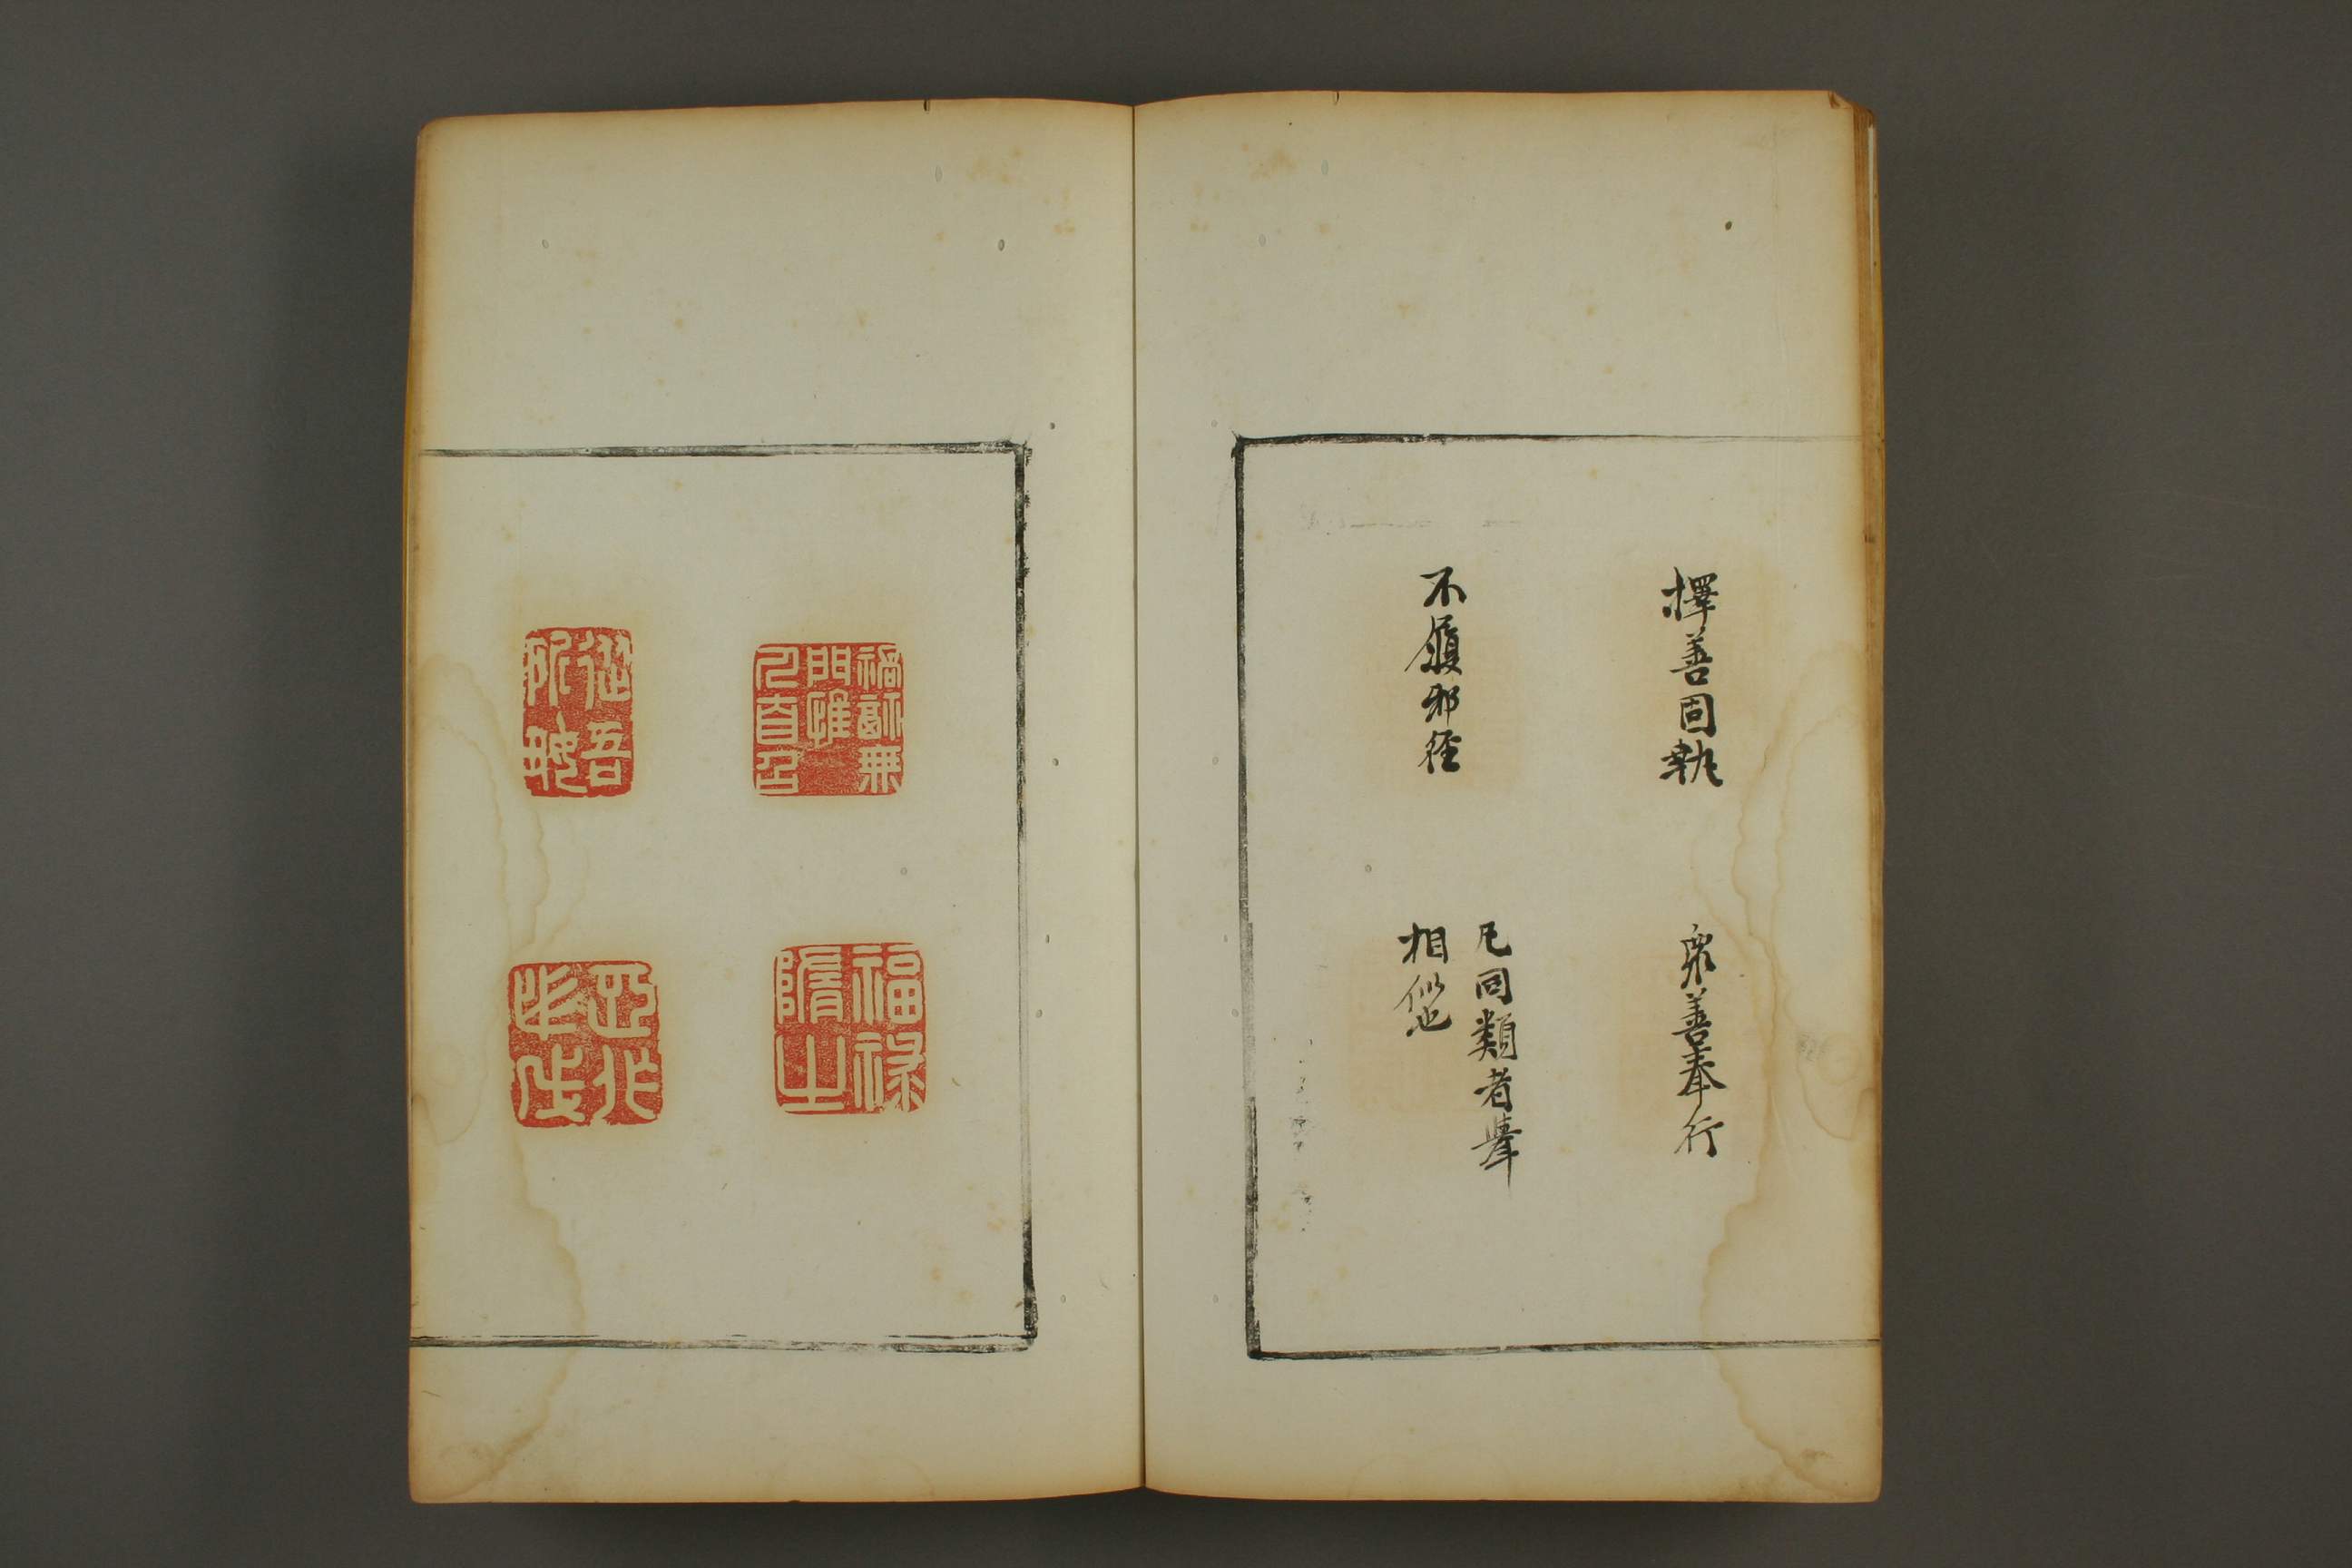 擇善固執
衆善奉行
不履邪徑
凡同類者舉
相似也
禍福無
門惟
人自召
福祿
隨之
從吾
所好